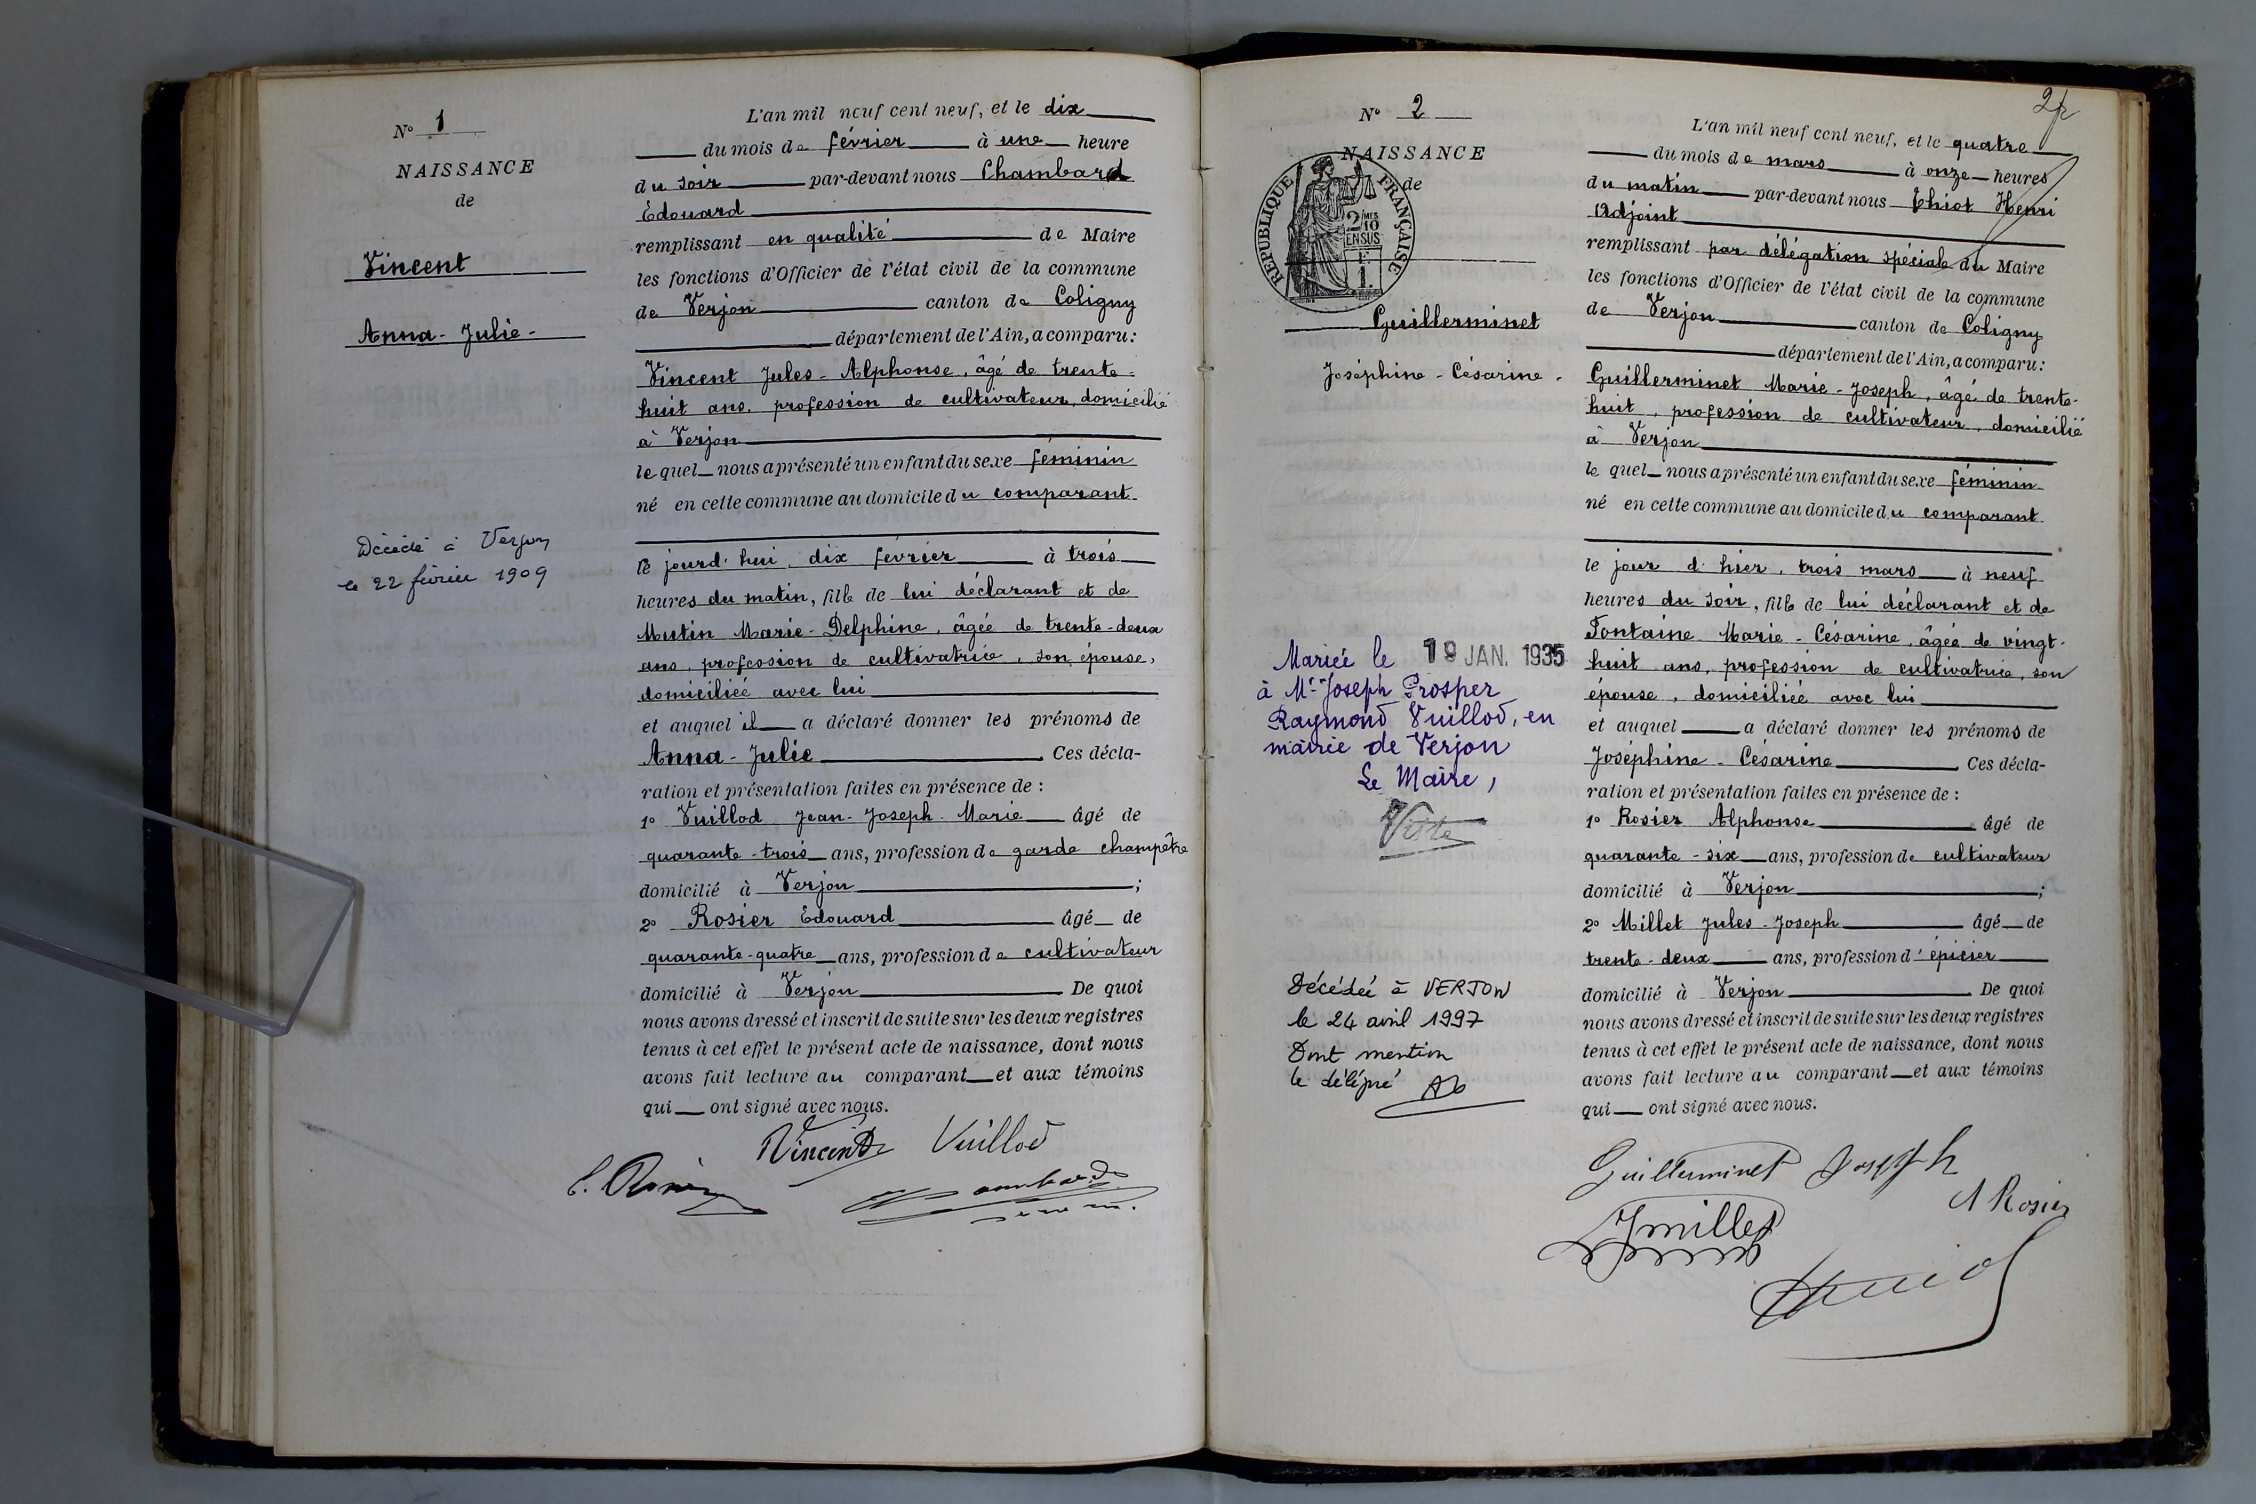 N° 1
NAISSANCE
de
Vincent
Anna-Julie-
Décédé à Verjon
le 22 février 1909
L'an mil neuf cent neuf, et le dix
du mois de février à une heure
du soir par-devant nous Chambard
Édouard
remplissant en qualité de Maire
les fonctions d'Officier de l'état civil de la commune
de Verjon canton de Coligny
département de l'Ain, a comparu:
Vincent Jules-Alphonse, âgé de trente-
huit ans, profession de cultivateur, domicilié
à Verjon
lequel nous a présenté un enfant du sexe féminin
né en cette commune au domicile du comparant
le jourd'hui, dix février à trois
heures du matin, fille de lui déclarant et de
Mutin Marie-Delphine, âgée de trente-deux
ans, profession de cultivatrice, son épouse,
domiciliée avec lui
et auquel il a déclaré donner les prénoms de
Anna-Julie Ces décla-
ration et présentation faites en présence de :
1° Vuillod Jean-Joseph-Marie âgé de
quarante-trois ans, profession de garde champêtre
domicilié à Verjon ;
2° Rosier Édouard âgé de
quarante-quatre ans, profession de cultivateur
domicilié à Verjon De quoi
nous avons dressé et inscrit de suite sur les deux registres
tenus à cet effet le présent acte de naissance, dont nous
avons fait lecture au comparant et aux témoins
qui ont signé avec nous.
Vincent Vuillod
E. Rosier Chambard
2
N° 2
NAISSANCE
de
REPUBLIQUE FRANÇAISE
2/10 MES
EN SUS
F.
1.
Guillerminet
Joséphine-Césarine-
Mariée le 19 JAN. 1935
à Mr Joseph Prosper
Raymond Vuillod, en
mairie de Verjon
Le Maire,
Décédée à VERJON
le 24 avril 1997
Dont mention
le délégué
L'an mil neuf cent neuf, et le quatre
du mois de mars à onze heures
du matin par-devant nous Thiot Henri
Adjoint
remplissant par délégation spéciale du Maire
les fonctions d'Officier de l'état civil de la commune
de Verjon canton de Coligny
département de l'Ain, a comparu:
Guillerminet Marie-Joseph, âgé de trente-
huit, profession de cultivateur, domicilié
à Verjon
lequel nous a présenté un enfant du sexe féminin
né en cette commune au domicile du comparant
le jour d'hier, trois mars à neuf
heures du soir, fille de lui déclarant et de
Fontaine Marie-Césarine, âgée de vingt-
huit ans, profession de cultivatrice, son
épouse, domiciliée avec lui
et auquel a déclaré donner les prénoms de
Joséphine-Césarine Ces décla-
ration et présentation faites en présence de :
1° Rosier Alphonse âgé de
quarante-six ans, profession de cultivateur
domicilié à Verjon ;
2° Millet Jules-Joseph âgé de
trente-deux ans, profession d'épicier
domicilié à Verjon De quoi
nous avons dressé et inscrit de suite sur les deux registres
tenus à cet effet le présent acte de naissance, dont nous
avons fait lecture au comparant et aux témoins
qui ont signé avec nous.
Guillerminet Joseph
A Rosier
J Millet